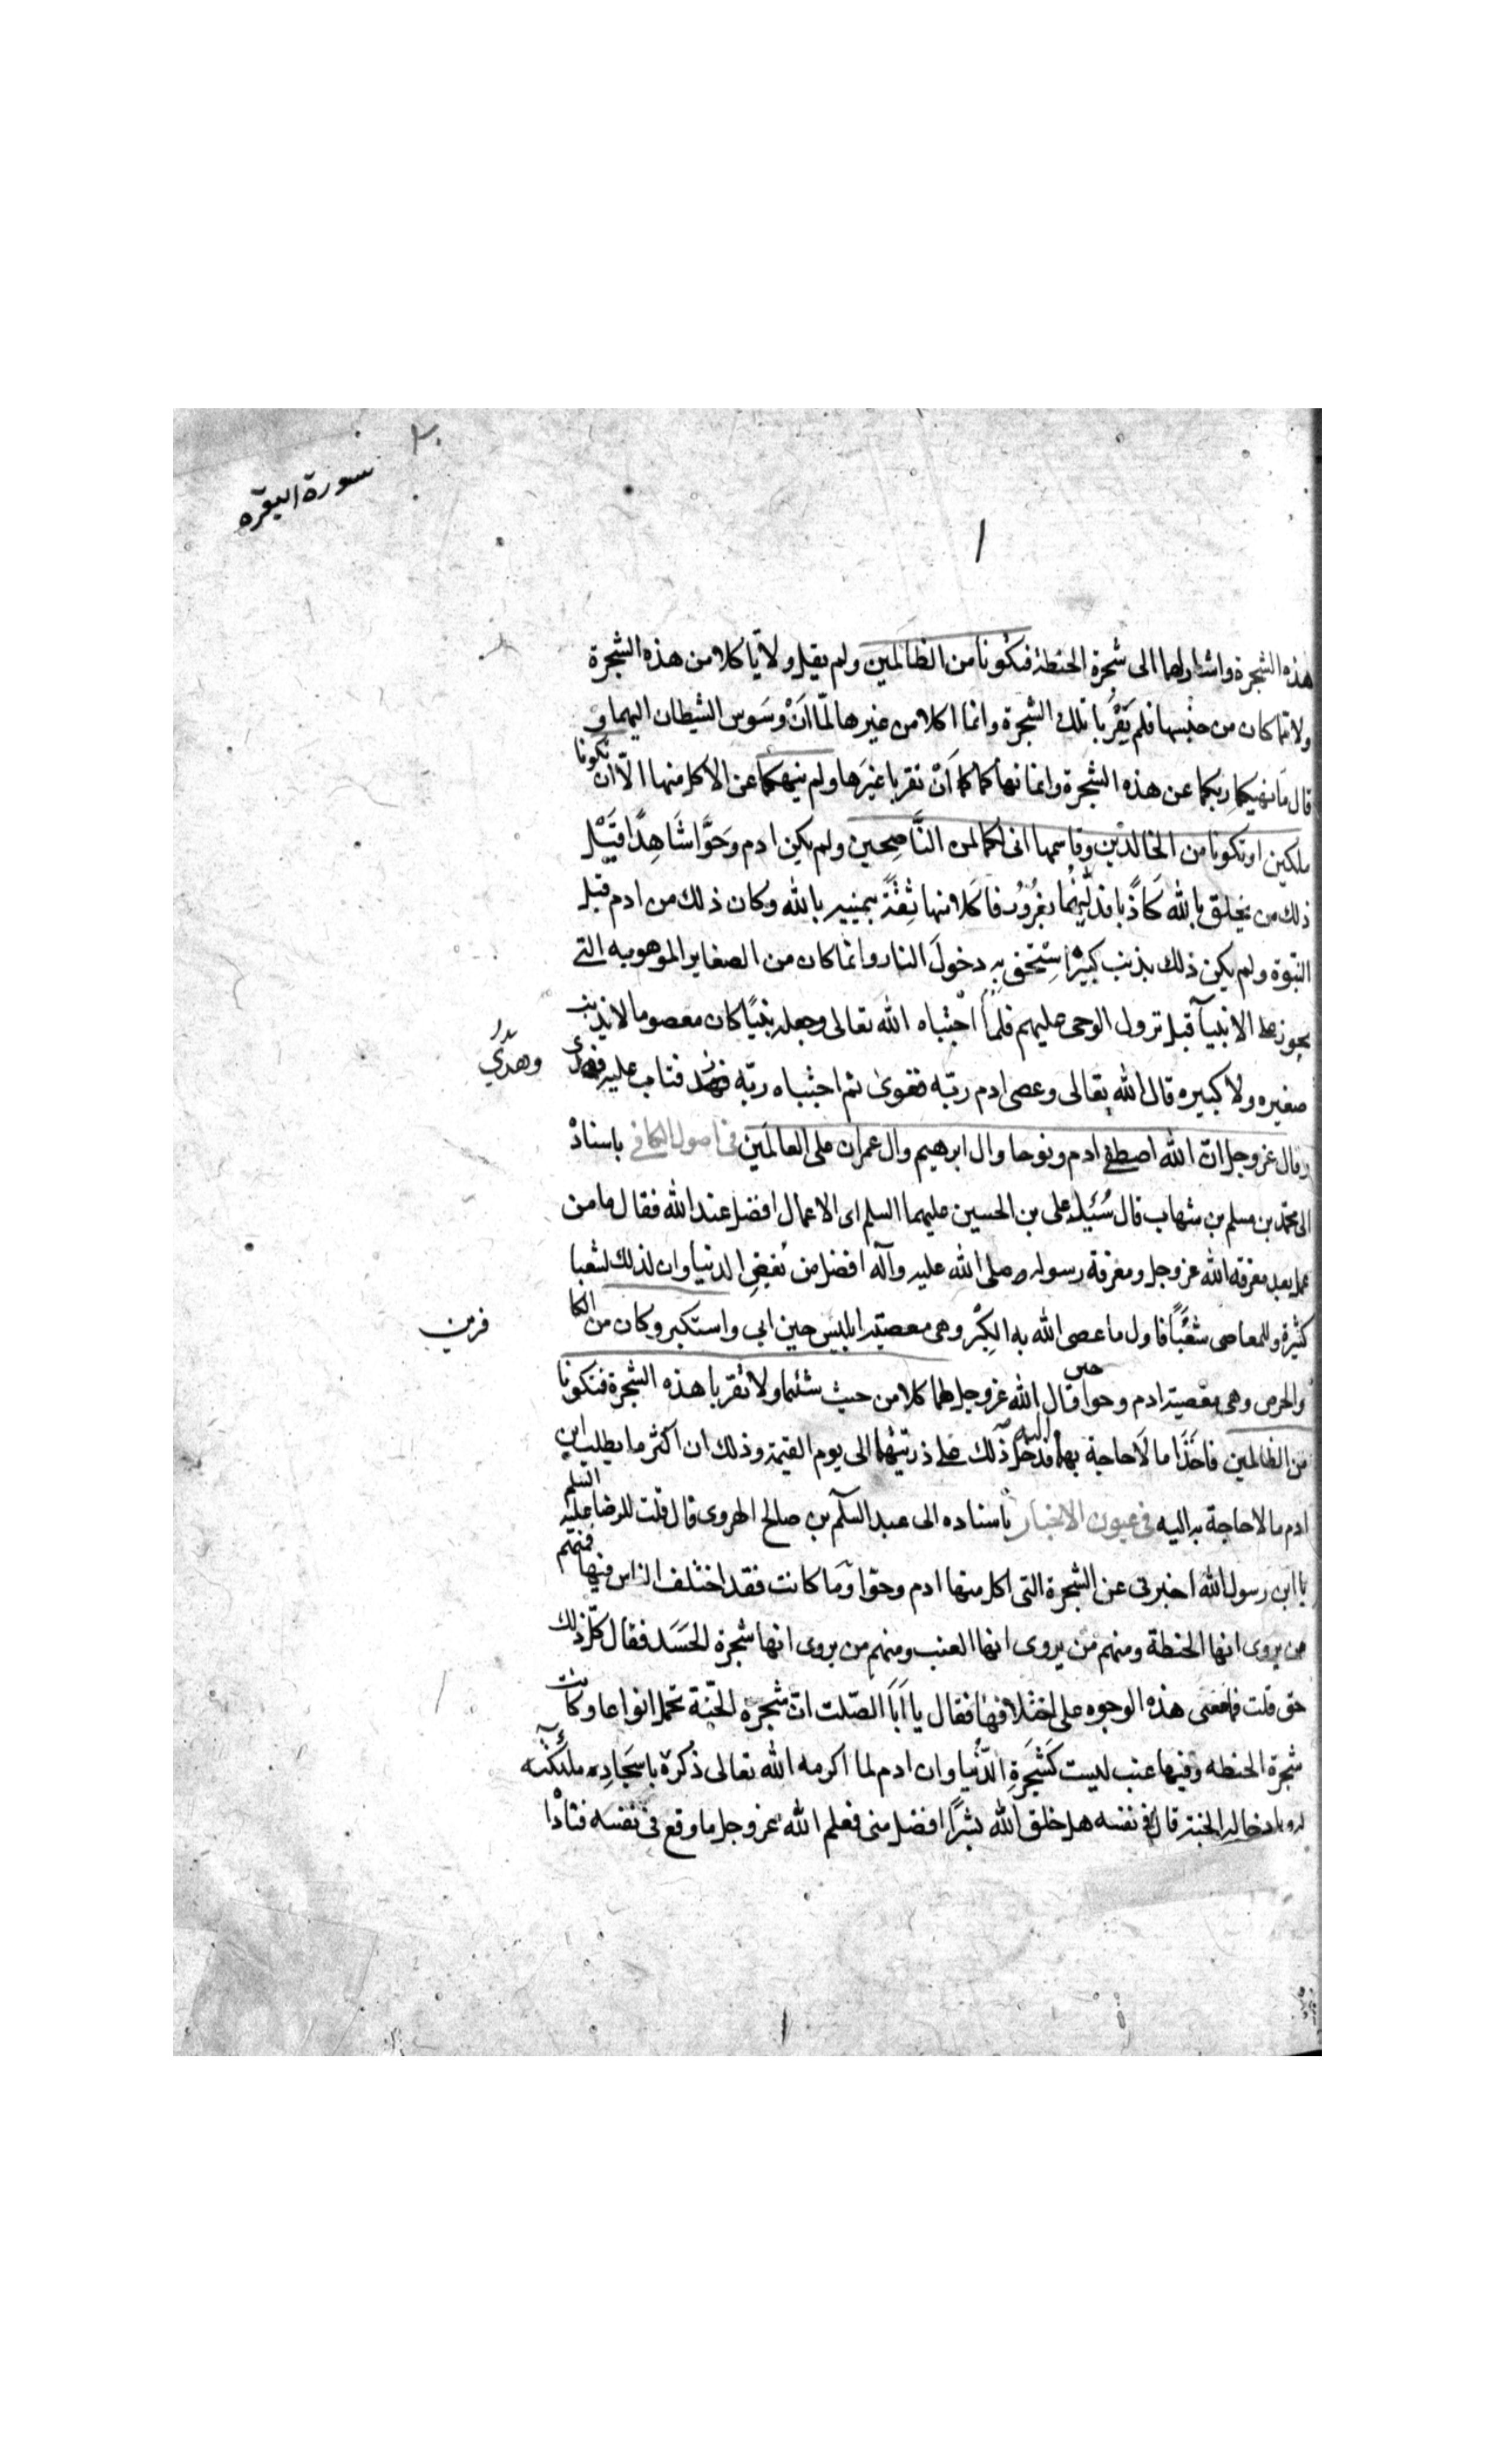 سورة البقره
١
هذه الشجرة واشار لهما الى شجرة الحنطة فتكونا من الظالمين ولم يقل ولا تأكلا من هذه الشجرة
ولا مما كان من جنسها فلم يَقْرَبا تلك الشجرة وانما اكلا من غيرها لمّا اَنْ وسَوس الشيطان اليهما و
قال ما نهيكما ربكما عن هذه الشجرة وانما نهاكما اَنْ تقربا غيَرها ولم ينهكما عن الاكل منها الّا ان تكونا
ملكين او تكونا من الخالدين وقاسمهما انى لكما لمن النَّاصِحين ولم يكن ادم وحَوَّا شَاهدَا قَبْل
ذلك من يحلق بالله كَاذبًا فدلّيهُما بغُرُورٍ فاكلا منها ثِقَةً بيمينه بالله وكان ذلك من ادم قبل
النبوة ولم يكن ذلك بذنب كبير استحق به دخولَ النار وانما كان من الصغاير الموهوبه التى
يجوز على الانبيآء قبل نزول الوحى عليهم فلما اجتباه الله تعالى وجعله نبيًا كان معصوما لا يذنب
صغيره ولا كبيره قال الله تعالى وعصى ادم ربّه فغوى ثم اجتباه ربّه فتاب عليه وهدى
وقال عز وجل انّ الله اصطفى ادم ونوحا وال ابرهيم وال عمران على العالمَين فى اصول الكافى باسناده
الى محمّد بن مسلم بن شهاب قال سُئِيل على بن الحسين عليهما السلم اى الاعمال افضل عند الله فقال ما من
عمل بعد معرفة الله عز وجل ومعرفة رسوله صلى الله عليه وآله افضل من بُغضِ الدنيا وان لذلك لشعبا
كثيرة وللمعاصى شُعَبًا فاول ما عصى الله به الكِبْر وهى معصية ابليس حين ابى واستكبر وكان من الكا
فرين
والحرص وهى معصية ادم وحوا حين قال الله عز وجل لهما كلا من حيث شئتما ولا تقربا هذه الشجرة فتكونا
من الظالمين فاخَذَا ما لَا حاجة بهما اليه فدخل ذلك على ذريّتهما الى يوم القيمة وذلك ان اكثر ما يطلب ابن
ادم ما لا حاجة به اليه فى عيون الاخبار باسناده الى عبد السلم بن صالح الهروى قال قلت للرضا عليه السلم
يا ابن رسول الله اخبرنى عن الشجرة التى اكل منها ادم وحوّا ومَا كانت فقد اختلف الناس فيها فمنهم
من يروى انها الحنطة ومنهم مَن يروى انها العنب ومنهم من يروى انها شجرة الحَسَد فقال كلّ ذلك
حق قلت فما معنى هذه الوجوه على اختلافها فقال يا اَبَا الصّلت انّ شجرة الجّنة تحمل انواعا وكانت
شجرة الحنطه وفيها عنب ليست كَشَجَرةِ الدّنُيا وان ادم لما اكرمه الله تعالى ذكره باسجَادِه ملئكته
له وبادخاله الجنة قال فى نفسه هل خلق الله بشرًا افضل منى فعلم الله عز وجل ما وقع فى نفسه فناداْ